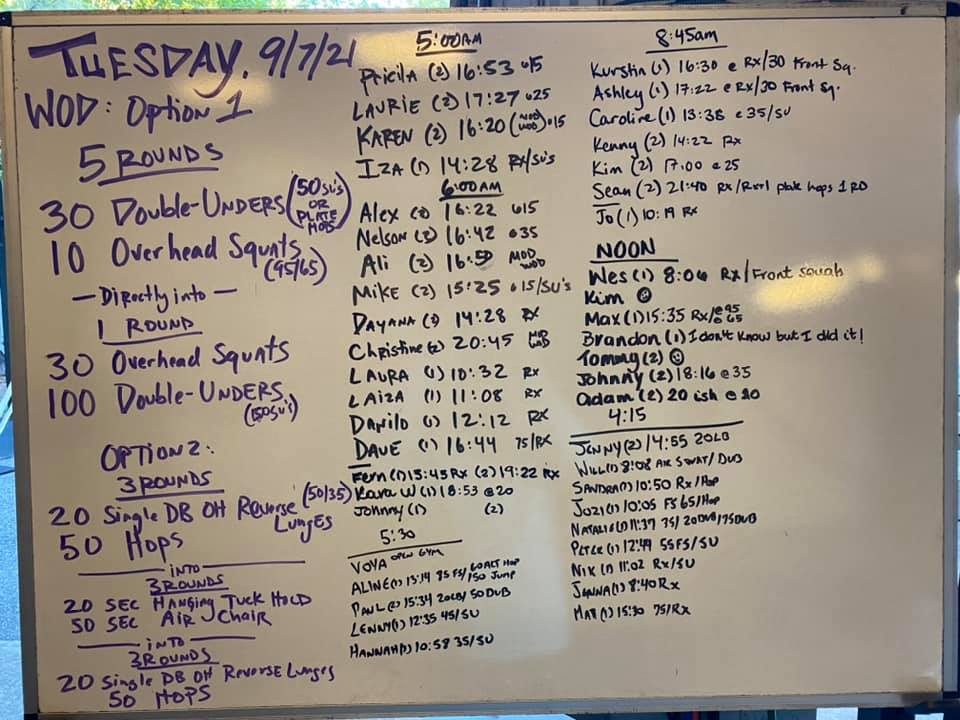 TUESDAY, 9/7/21
WOD: Option 1
5 ROUNDS
30 Double-UNDERS (50 SU'S OR PLATE HOPS)
10 Overhead Squats (95/65)
— Directly into —
1 ROUND
30 Overhead Squats
100 Double-UNDERS (150 SU'S)
OPTION 2:
3 ROUNDS
20 Single DB OH Reverse Lunges (50/35)
50 HOPS
INTO
3 ROUNDS
20 SEC HANGING TUCK HOLD
50 SEC AIR CHAIR
INTO
3 ROUNDS
20 Single DB OH Reverse Lunges
50 HOPS
5:00AM
Pricila (2) 16:53 @15
LAURIE (2) 17:27 @25
KAREN (2) 16:20 (MOD WOD) @15
IZA (1) 14:28 RX/SU's
6:00AM
Alex (2) 16:22 @15
Nelson (2) 16:42 @35
Ali (2) 16:50 MOD WOD
MIKE (2) 15:25 @15/SU's
DAYANA (1) 14:28 RX
Christine (2) 20:45 MOD WOD
LAURA (1) 10:32 RX
LAIZA (1) 11:08 RX
Danilo (1) 12:12 RX
DAVE (1) 16:44 75/RX
Fern (1) 15:45 RX (2) 19:22 RX
Kara W (1) 18:53 @20
Johnny (1) (2)
5:30
VOVA OPEN GYM
ALINE (1) 13:14 85 FS/60 ALT HOP 150 JUMP
PAUL (2) 15:34 20LB/50 DUB
LENNY (1) 12:35 45/SU
HANNAH (1) 10:58 35/SU
8:45am
Kurstin (1) 16:30 @ RX/30 Front Sq.
Ashley (1) 17:22 @ RX/30 Front Sq.
Caroline (1) 13:38 @ 35/SU
Kenny (2) 14:22 RX
Kim (2) 17:00 @ 25
Sean (2) 21:40 RX/RX+1 plate hops 1 RD
Jo (1) 10:19 RX
NOON
Wes (1) 8:06 RX/Front squats
Kim ☺
Max (1) 15:35 RX/@95 @65
Brandon (1) I don't know but I did it!
Tommy (2) ☺
Johnny (2) 18:16 @ 35
Adam (2) 20 ish @ 20
4:15
JENNY (2) 14:55 20LB
WILL (1) 8:08 AIR SQUAT/DUB
SANDRA (1) 10:50 RX/HOP
JOZI (1) 10:05 FS 65/HOP
NATALIE (1) 11:37 35/20DUB/75DUB
PETER (1) 12:49 55FS/SU
NIX (1) 11:02 RX/SU
JENNA (1) 8:40 RX
MAX (1) 15:30 75/RX